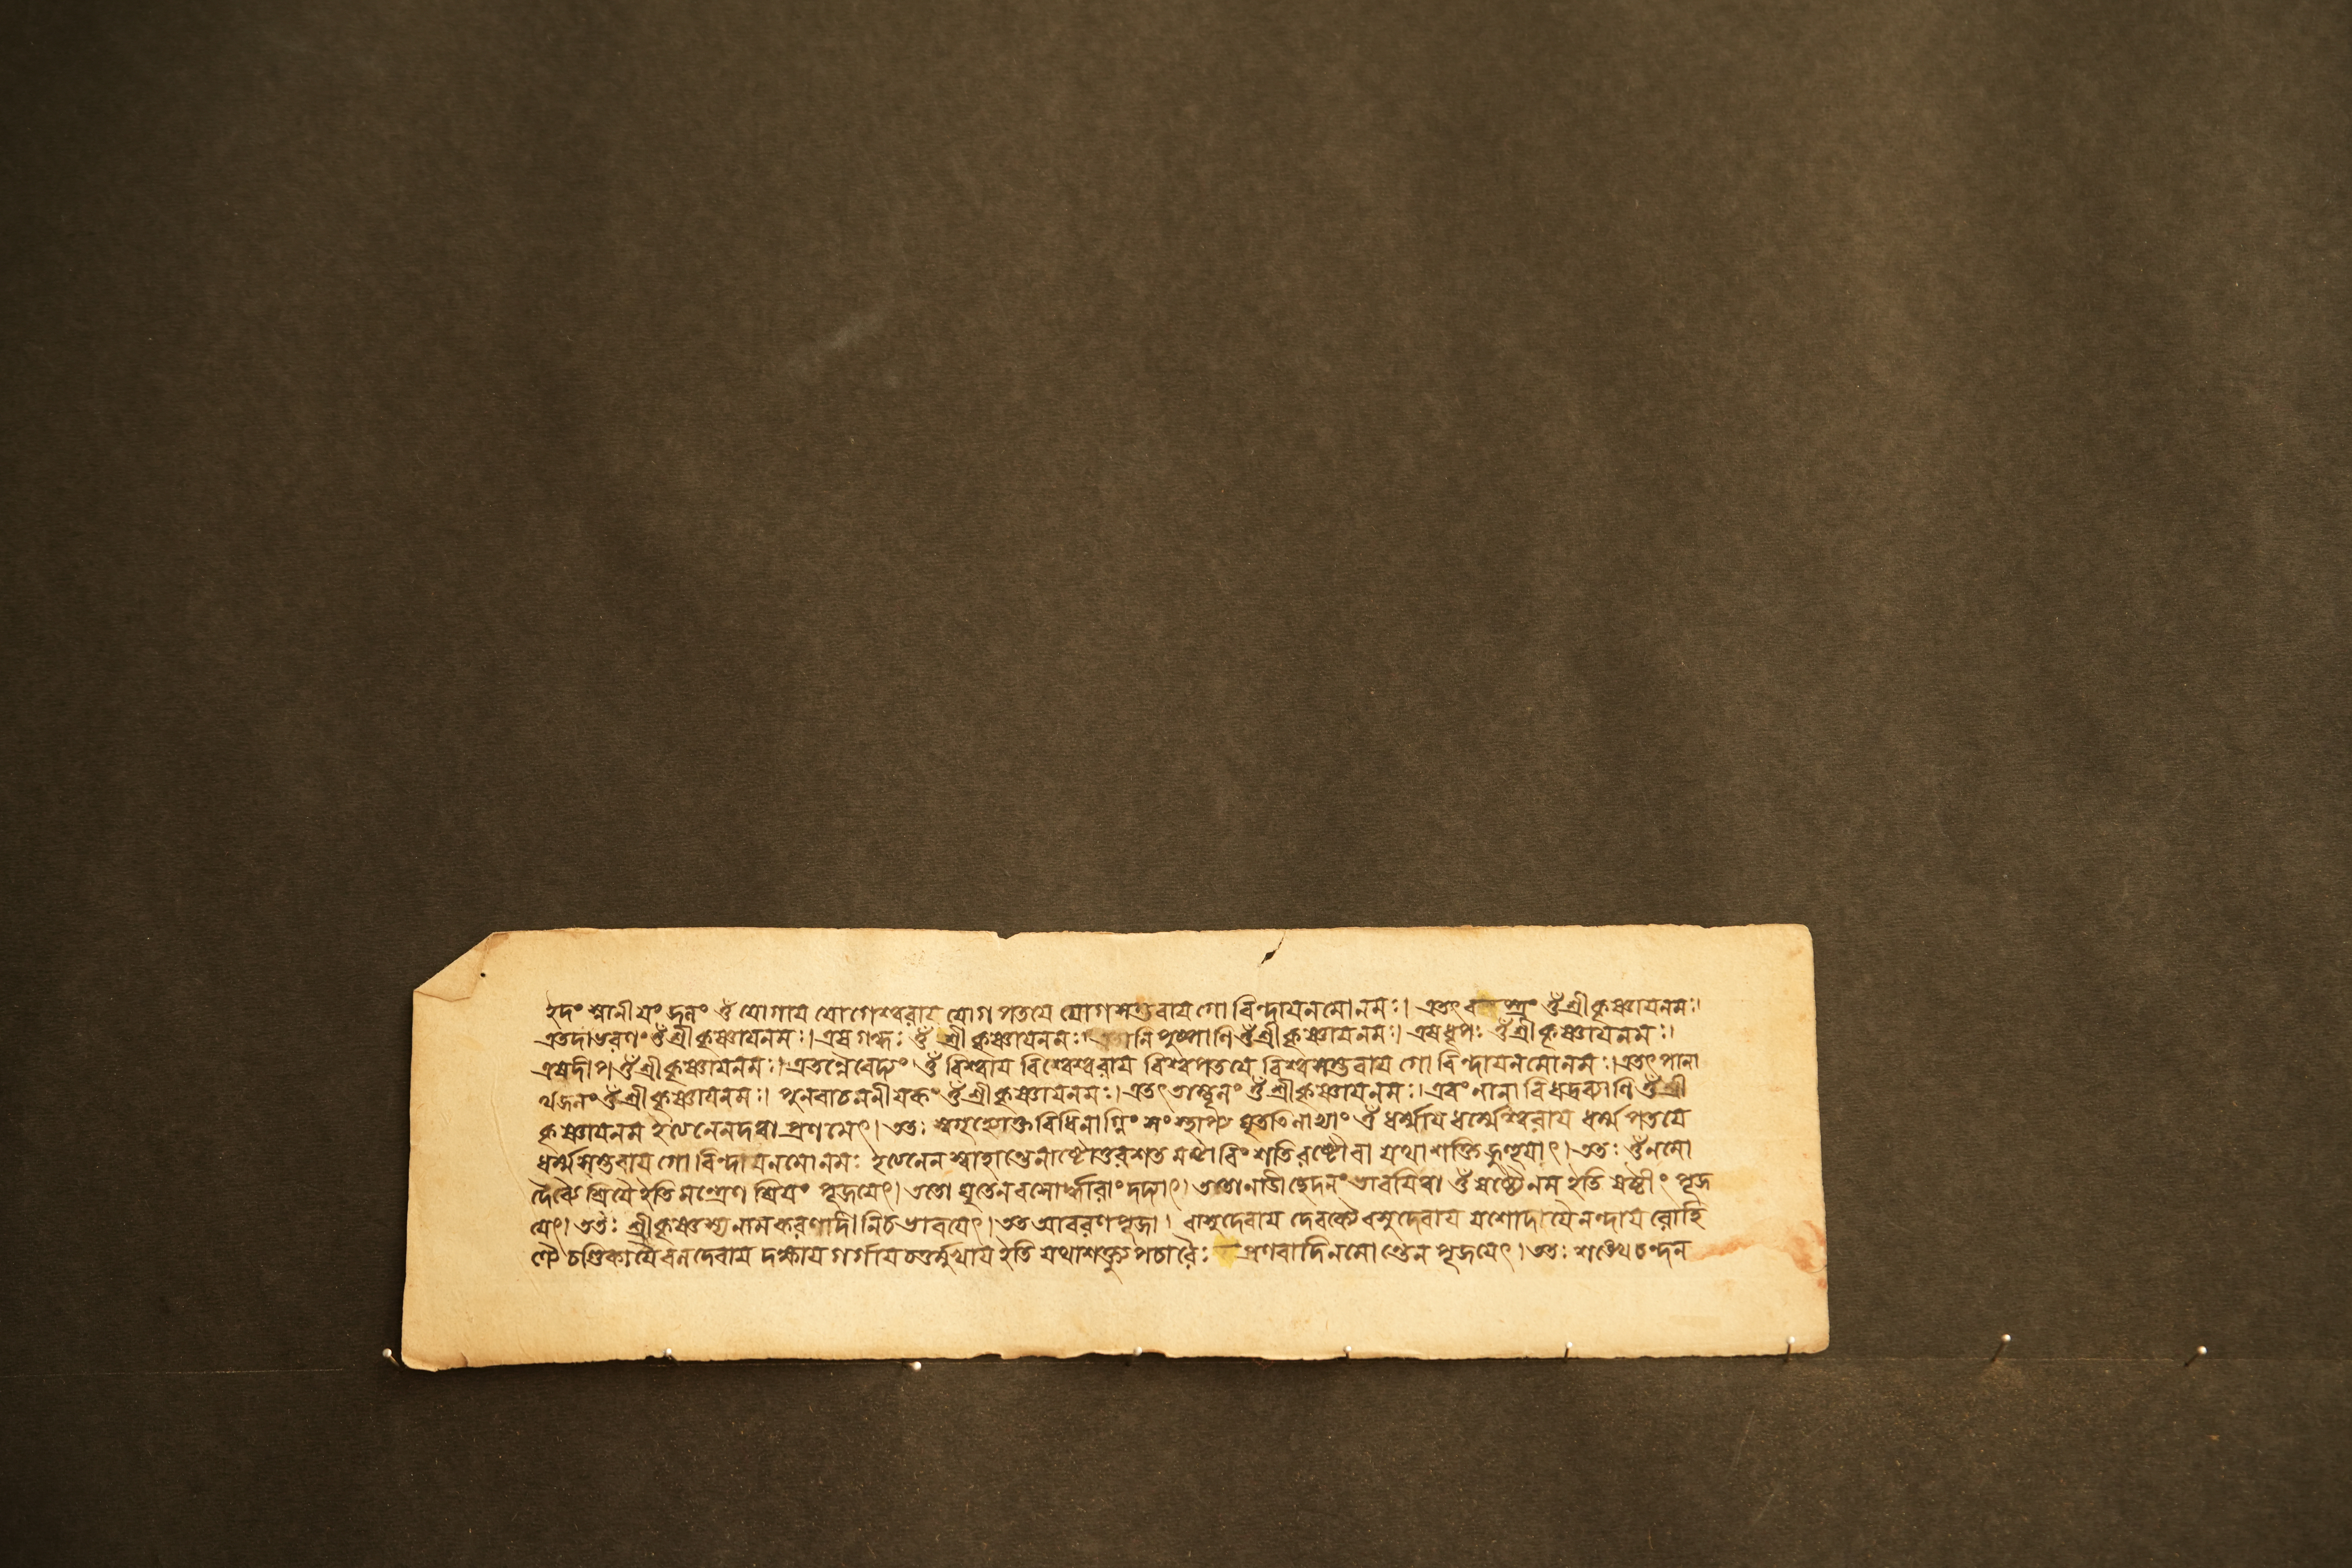 ইদং স্নানীয়ং জলং ওঁ যোগায যোগেশ্বরায যোগ পতযে যোগসম্ভবায গোবিন্দায নমোনমঃ। এতৎ ওঁশ্রীকৃষ্ণাযনমঃ।
এতদাভরণং ওঁশ্রীকৃষ্ণাযনমঃ। এষ গন্ধঃ ওঁ শ্রীকৃষ্ণাযনমঃ। পুষ্পাণি ওঁশ্রীকৃষ্ণাযনমঃ। এষধূপঃ ওঁশ্রীকৃষ্ণাযনমঃ।
এষদীপ ওঁশ্রীকৃষ্ণাযনমঃ। এতন্নৈবেদ্যং ওঁ বিশ্বায বিশ্বেশ্বরায বিশ্বপতযে বিশ্বসম্ভবায গোবিন্দাযনমোনমঃ। এতৎ পানা
র্থজলং ওঁশ্রীকৃষ্ণাযনমঃ। পুনরাচমনীযকং ওঁশ্রীকৃষ্ণাযনমঃ। এতৎ তাম্বূলং ওঁশ্রীকৃষ্ণাযনমঃ। এবং নানাবিধদ্রব্যাণি ওঁশ্রী
কৃষ্ণাযনম ইত্যনেনদত্বা প্রণমেৎ। ততঃ স্বগৃহ্যোক্তবিধিনাগ্নিং সংস্থাপ্য ঘৃততিলাভ্যাং ওঁ ধর্ম্মায ধর্ম্মেশ্বরায ধর্ম্ম পতযে
ধর্ম্মসম্ভবায গোবিন্দাযনমোনমঃ ইত্যনেন স্বাহান্তেনাষ্টোত্তরশতমষ্টাবিংশতিরষ্টৌবা যথাশক্তি জুহুযাৎ। ততঃ ওঁনমো
দেব্যৈ শ্রিযৈ ইতিমন্ত্রেণ শ্রিযং পূজযেৎ। ততো ঘৃতেনবসোর্দ্ধারাং দদ্যাৎ। ততোনাডীচ্ছেদনং ভাবযিত্বা ওঁষষ্ঠ্যৈনম ইতি ষষ্ঠীং পূজ
যেৎ। ততঃ শ্রীকৃষ্ণস্য নামকরণাদীনিচ ভাবযেৎ। তত আবরণপূজা। বাসুদেবায দেবক্যৈ বসুদেবায যশোদাযৈ নন্দায রোহি
ণ্যৈ চণ্ডিকাযৈ বলদেবায দক্ষায গর্গায চতুর্ম্মুখায ইতি যথাশক্ত্যুপচারৈঃ প্রণবাদিনমোন্তেন পূজযেৎ। ততঃ শঙ্খে চন্দন